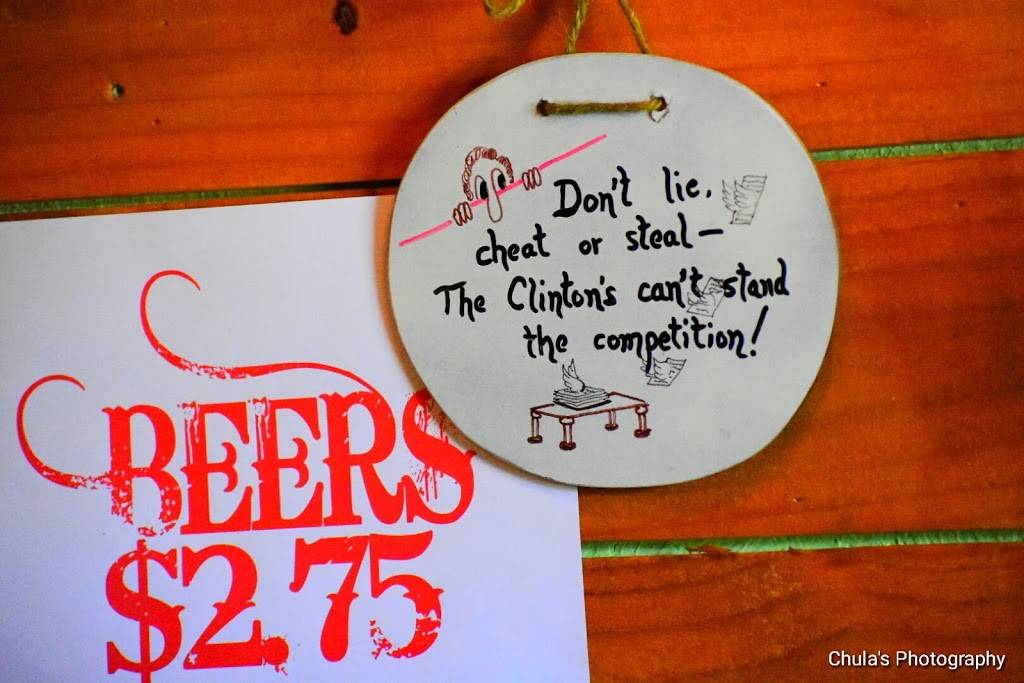 Don't lie,
cheat or steal—
The Clinton's can't stand
the competition!
BEERS
$2.75
Chula's Photography